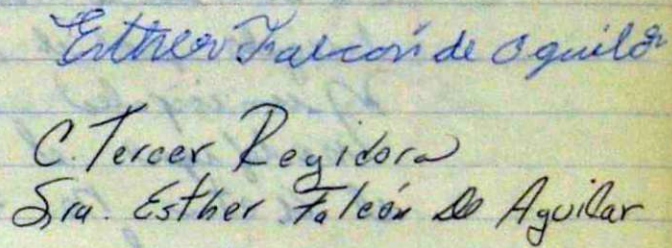 Esther Falcón de Aguilar
C. Tercer Regidora
Sra. Esther Falcón De Aguilar